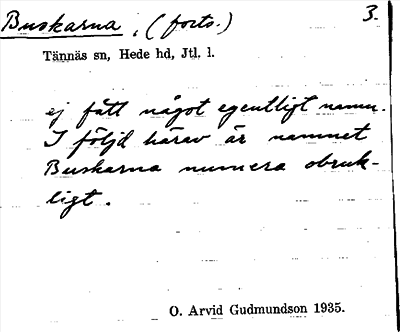 Buskarna, (forts.) 3.
Tännäs sn, Hede hd, Jtl. l.
ej fått något egentligt namn.
I följd härav är namnet
Buskarna numera obruk-
ligt.
O. Arvid Gudmundson 1935.